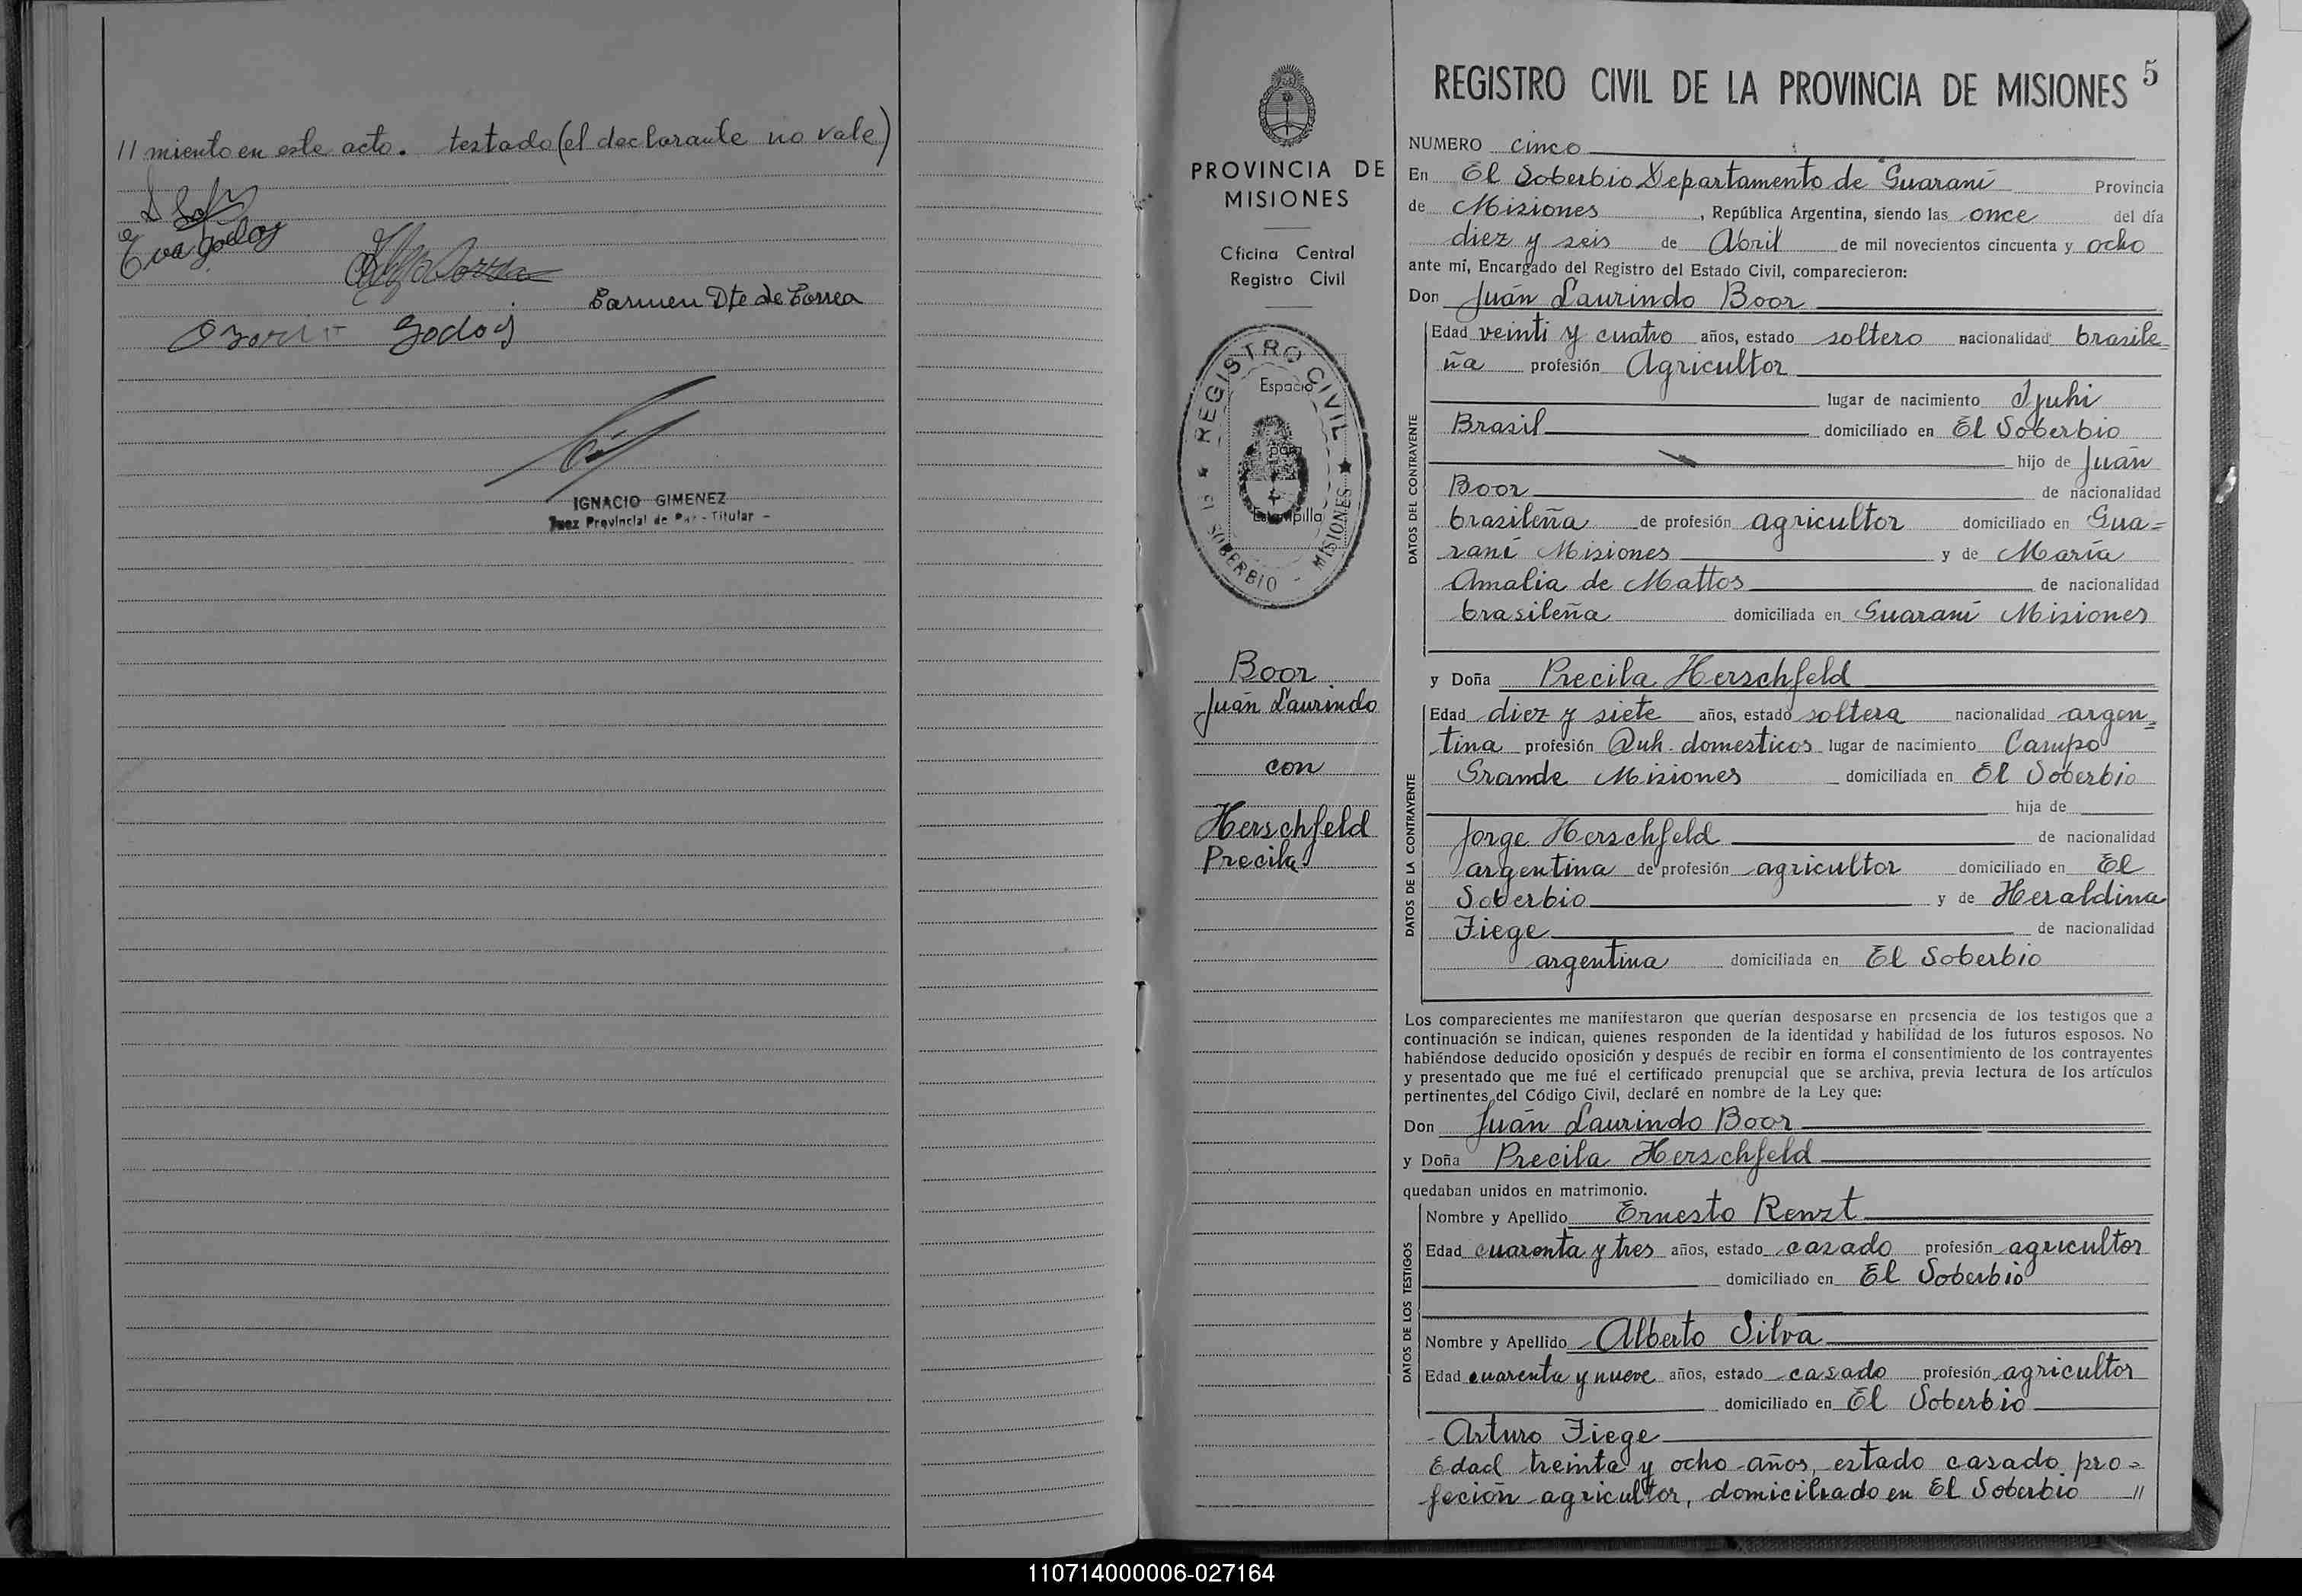 11 miento en este acto. testado (el declarante no vale)
Eva Godoy
Carmen Dte de Correa
Godoy
IGNACIO GIMENEZ
Juez Provincial de Paz - Titular -
PROVINCIA DE
MISIONES
Oficina Central
Registro Civil
REGISTRO CIVIL
Espacio
para
Estampilla
EL SOBERBIO - MISIONES
Boor
Juán Laurindo
con
Herschfeld
Precila
REGISTRO CIVIL DE LA PROVINCIA DE MISIONES 5
NUMERO cinco
En El Soberbio Departamento de Guaraní Provincia
de Misiones, República Argentina, siendo las once del día
diez y seis de Abril de mil novecientos cincuenta y ocho
ante mí, Encargado del Registro del Estado Civil, comparecieron:
Don Juán Laurindo Boor
DATOS DEL CONTRAYENTE
Edad veinti y cuatro años, estado soltero nacionalidad brasile=
ña profesión Agricultor
lugar de nacimiento Ijuhi
Brasil domiciliado en El Soberbio
hijo de Juán
Boor de nacionalidad
brasileña de profesión agricultor domiciliado en Gua=
raní Misiones y de María
Amalia de Mattos de nacionalidad
brasileña domiciliada en Guaraní Misiones
y Doña Precila Herschfeld
DATOS DE LA CONTRAYENTE
Edad diez y siete años, estado soltera nacionalidad argen=
tina profesión Quh. domesticos lugar de nacimiento Campo
Grande Misiones domiciliada en El Soberbio
hija de
Jorge Herschfeld de nacionalidad
argentina de profesión agricultor domiciliado en El
Soberbio y de Heraldina
Fiege de nacionalidad
argentina domiciliada en El Soberbio
Los comparecientes me manifestaron que querían desposarse en presencia de los testigos que a
continuación se indican, quienes responden de la identidad y habilidad de los futuros esposos. No
habiéndose deducido oposición y después de recibir en forma el consentimiento de los contrayentes
y presentado que me fué el certificado prenupcial que se archiva, previa lectura de los artículos
pertinentes del Código Civil, declaré en nombre de la Ley que:
Don Juán Laurindo Boor
y Doña Precila Herschfeld
quedaban unidos en matrimonio.
DATOS DE LOS TESTIGOS
Nombre y Apellido Ernesto Renzt
Edad cuarenta y tres años, estado casado profesión agricultor
domiciliado en El Soberbio
Nombre y Apellido Alberto Silva
Edad cuarenta y nueve años, estado casado profesión agricultor
domiciliado en El Soberbio
Arturo Fiege
Edad treinta y ocho años, estado casado pro=
fecion agricultor, domiciliado en El Soberbio 11
110714000006-027164